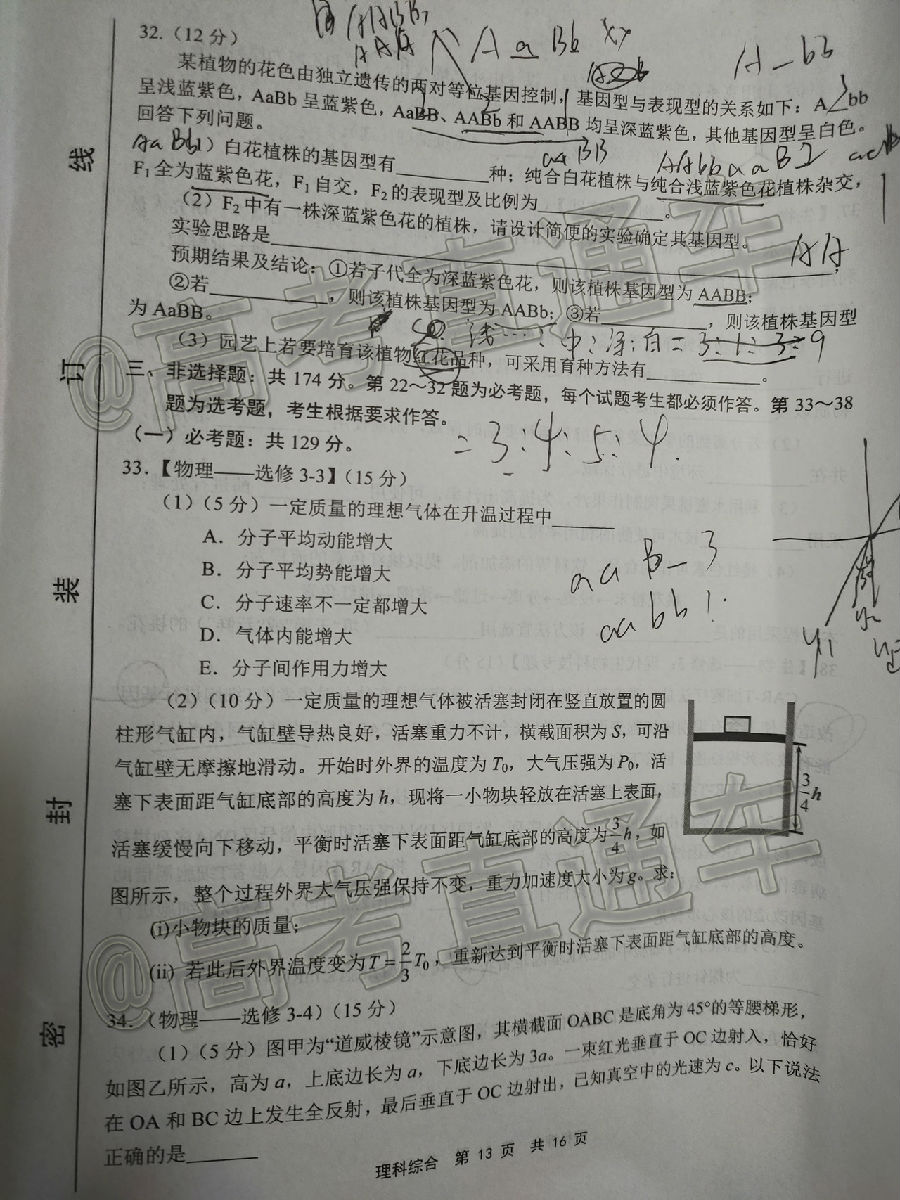 32.（12 分）
某植物的花色由独立遗传的两对等位基因控制，基因型与表现型的关系如下：A_bb
呈浅蓝紫色，AaBb 呈蓝紫色，AaBB、AABb 和 AABB 均呈深蓝紫色，其他基因型呈白色。
回答下列问题。
（1）白花植株的基因型有________种；纯合白花植株与纯合浅蓝紫色花植株杂交，
F₁全为蓝紫色花，F₁自交，F₂的表现型及比例为________。
（2）F₂中有一株深蓝紫色花的植株，请设计简便的实验确定其基因型。
实验思路是________
预期结果及结论：①若子代全为深蓝紫色花，则该植株基因型为 AABB；
②若________，则该植株基因型为 AABb；③若________，则该植株基因型
为 AaBB。
（3）园艺上若要培育该植物红花品种，可采用育种方法有________。
三、非选择题：共 174 分。第 22～32 题为必考题，每个试题考生都必须作答。第 33～38
题为选考题，考生根据要求作答。
（一）必考题：共 129 分。
33.【物理——选修 3-3】（15 分）
（1）（5 分）一定质量的理想气体在升温过程中______
A．分子平均动能增大
B．分子平均势能增大
C．分子速率不一定都增大
D．气体内能增大
E．分子间作用力增大
（2）（10 分）一定质量的理想气体被活塞封闭在竖直放置的圆
柱形气缸内，气缸壁导热良好，活塞重力不计，横截面积为 S，可沿
气缸壁无摩擦地滑动。开始时外界的温度为 T₀，大气压强为 P₀，活
塞下表面距气缸底部的高度为 h，现将一小物块轻放在活塞上表面，
活塞缓慢向下移动，平衡时活塞下表面距气缸底部的高度为 3/4 h，如
图所示，整个过程外界大气压强保持不变，重力加速度大小为 g。求：
(i)小物块的质量；
(ii) 若此后外界温度变为 T = 2/3 T₀，重新达到平衡时活塞下表面距气缸底部的高度。
3/4 h
34.（物理——选修 3-4）（15 分）
（1）（5 分）图甲为“道威棱镜”示意图，其横截面 OABC 是底角为 45°的等腰梯形，
如图乙所示，高为 a，上底边长为 a，下底边长为 3a。一束红光垂直于 OC 边射入，恰好
在 OA 和 BC 边上发生全反射，最后垂直于 OC 边射出，已知真空中的光速为 c。以下说法
正确的是______
理科综合 第 13 页 共 16 页
密 封 装 订 线
@高考直通车
@高考直通车
AaBb
A_bb
aaBB
AAbb
AA
浅：中：深：白 = 3：1：3：9
= 3：4：5：4
aaB_ 3
aabb 1